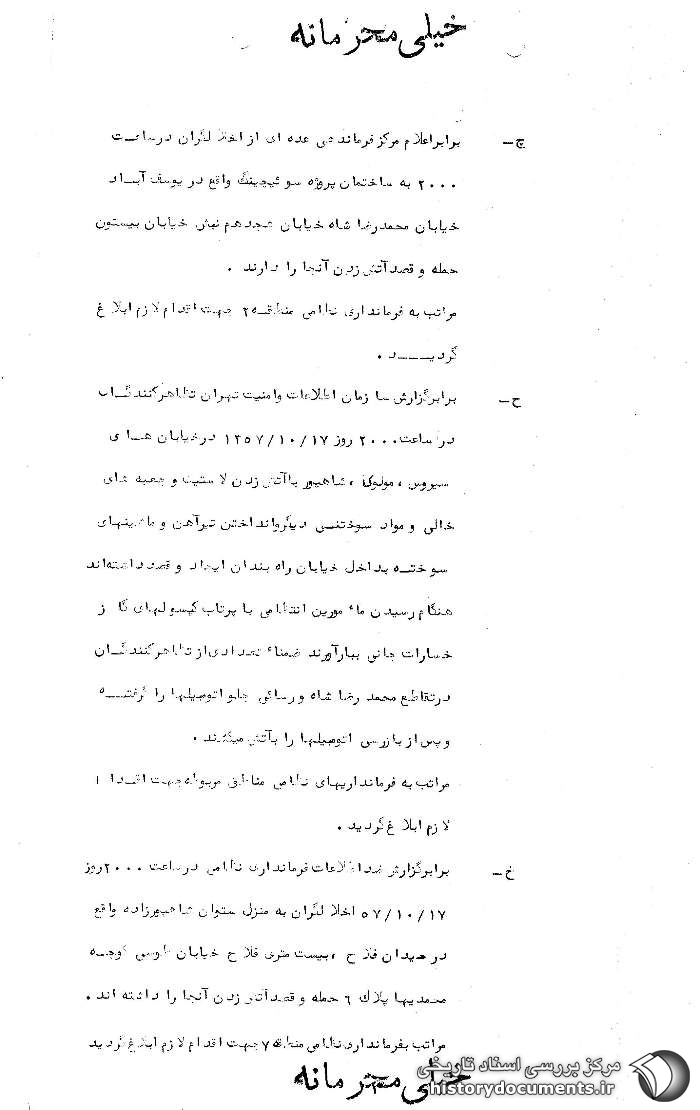 خیلی محرمانه
چ- برابر اعلام مرکز فرماندهی عده ای از اخلالگران در ساعت
۲۰۰۰ به ساختمان پروژه سوئیچینگ واقع در یوسف آباد
خیابان محمدرضا شاه خیابان هجدهم نبش خیابان بیستون
حمله و قصد آتش زدن آنجا را دارند .
مراتب به فرمانداری نظامی منطقه ۲ جهت اقدام لازم ابلاغ
گردیــــد .
ح- برابر گزارش سازمان اطلاعات و امنیت تهران تظاهرکنندگان
در ساعت ۲۰۰۰ روز ۱۳۵۷/۱۰/۱۷ در خیابان هــای
سیروس ، مولوی ، شاهپور با آتش زدن لاستیک و جعبه های
خالی و مواد سوختنــی دیگر و انداختن تیرآهن و ماشینهای
سوخته بداخل خیابان راه بندان ایجاد و قصد داشته اند
هنگام رسیدن مأمورین انتظامی با پرتاب کپسولهای گاز
خسارات جانی ببار آورند ضمناً تعدادی از تظاهرکنندگــان
در تقاطع محمد رضا شاه و رسائی جلو اتومبیلها را گرفتــه
و پس از بازرسی اتومبیلها را بآتش میکشند .
مراتب به فرمانداریهای نظامی مناطق مربوطه جهت اقــدام
لازم ابلاغ گردید .
خ- برابر گزارش ضد اطلاعات فرمانداری نظامی در ساعت ۲۰۰۰ روز
۵۷/۱۰/۱۷ اخلالگران به منزل ستوان شاهپورزاده واقع
در میدان فلاح ، بیست متری فلاح خیابان طوسی کوچــه
محمدیها پلاک ۶ حمله و قصد آتش زدن آنجا را داشته اند .
مراتب بفرمانداری نظامی منطقه ۷ جهت اقدام لازم ابلاغ گردید
خیلی محرمانه
مرکز بررسی اسناد تاریخی
historydocuments.ir